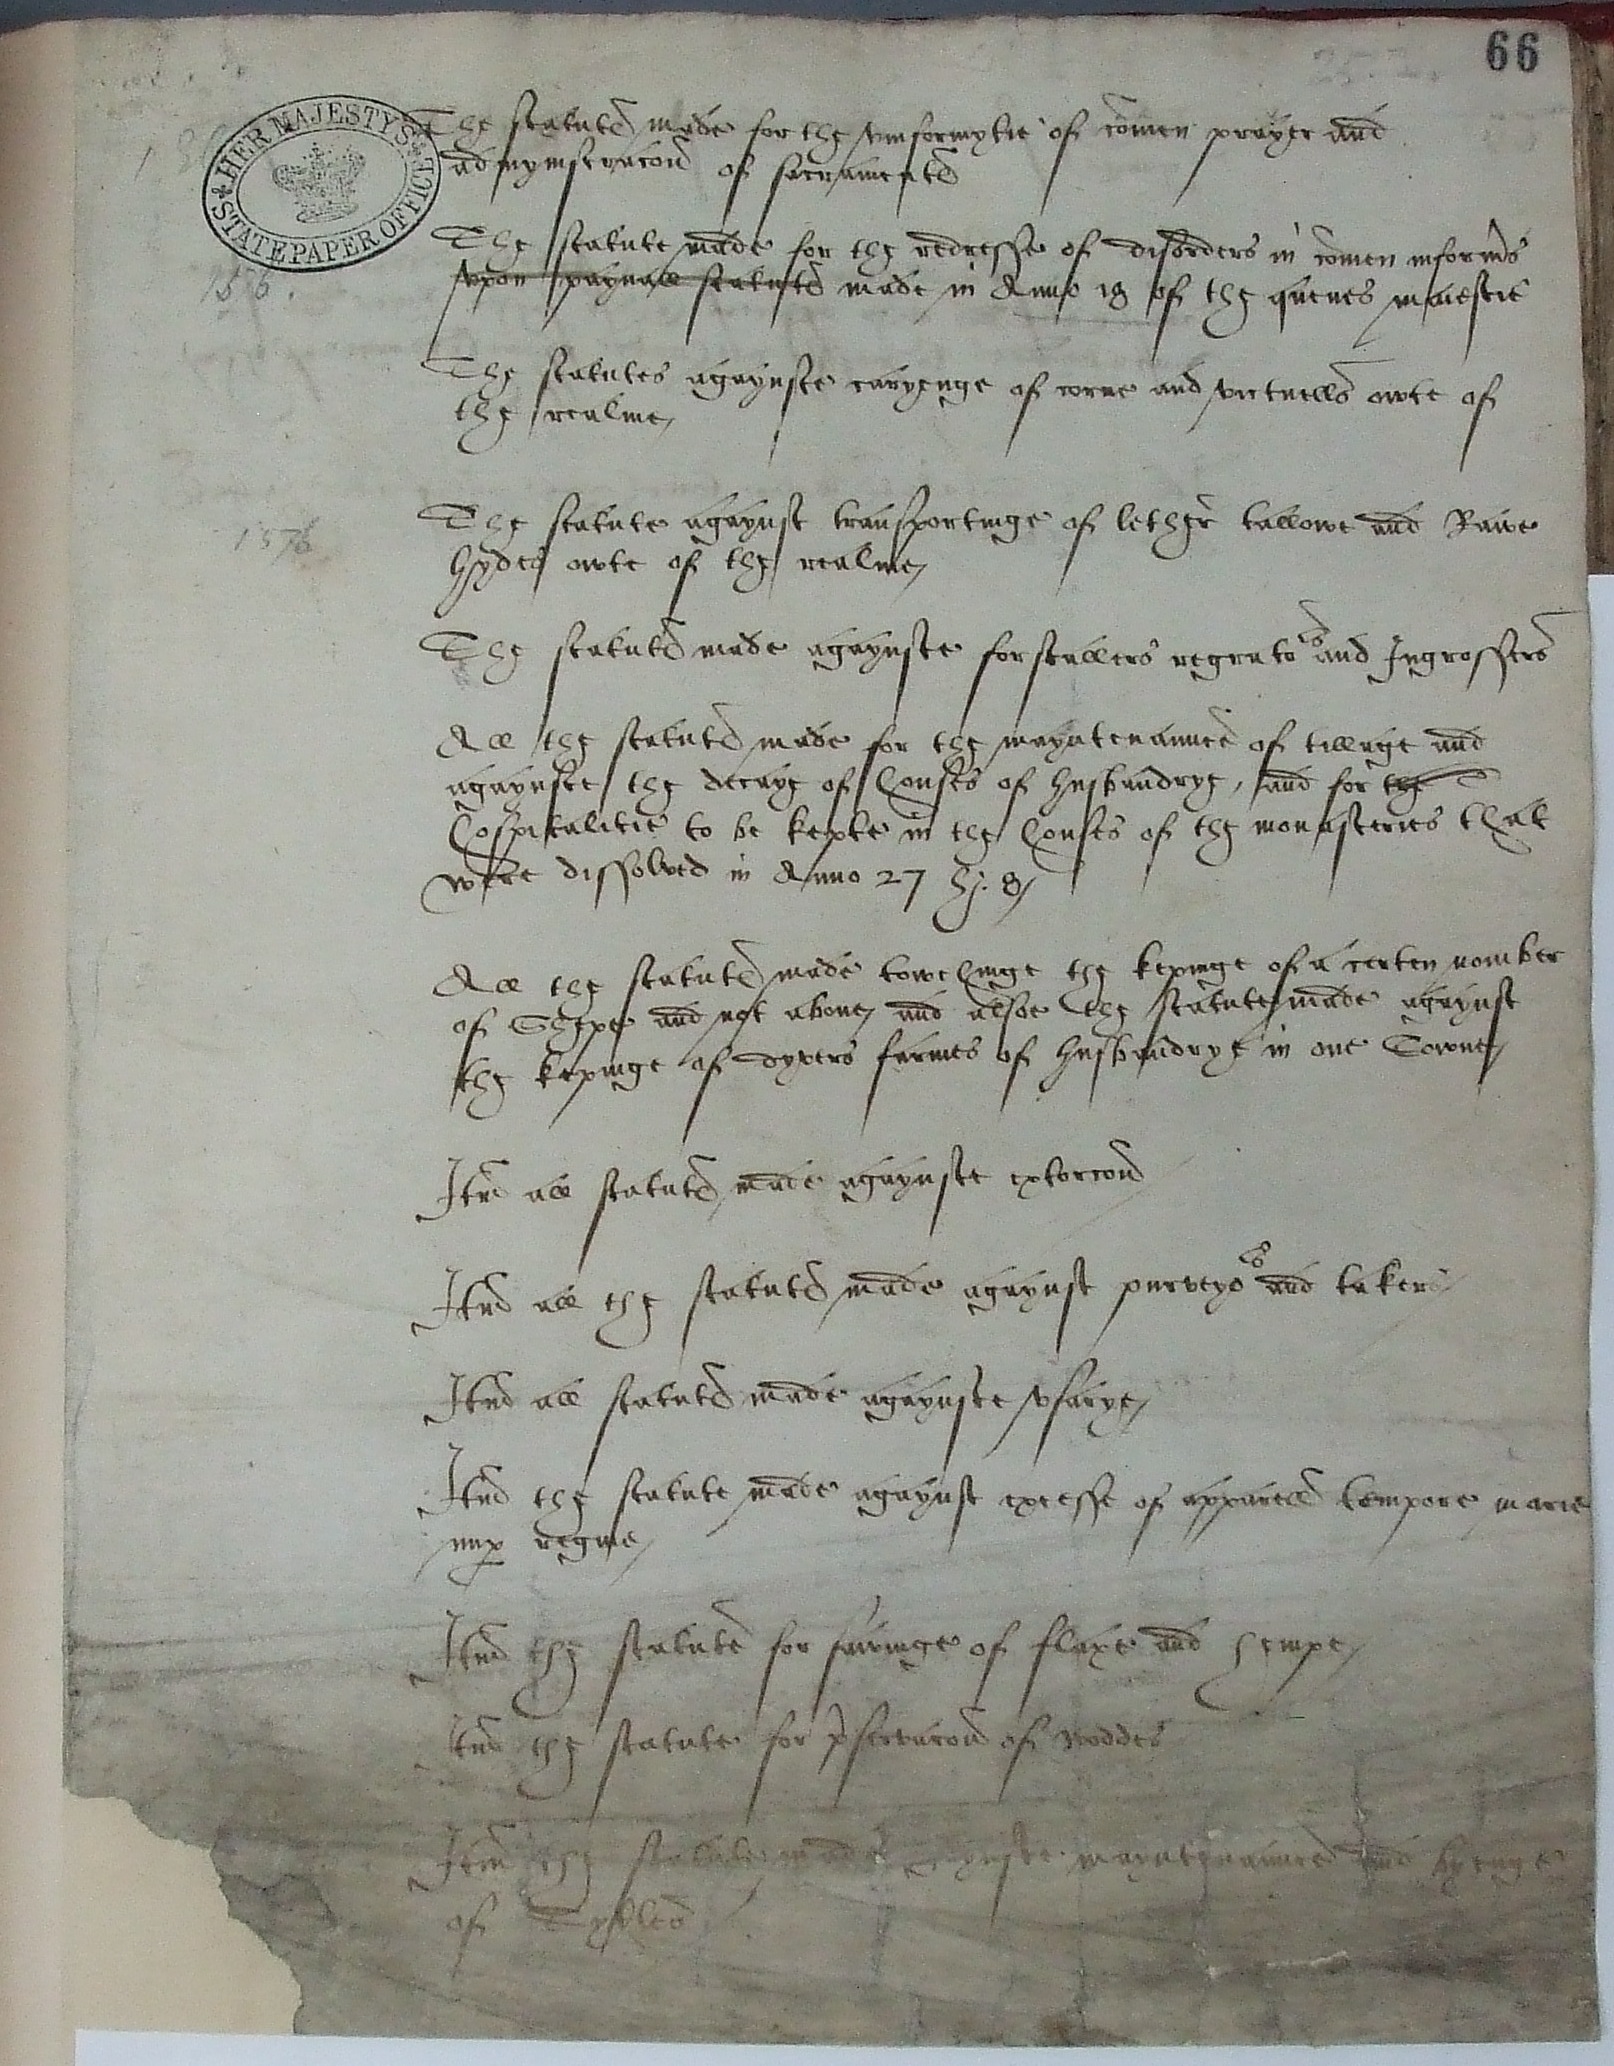 66
HER MAJESTY'S
STATE PAPER OFFICE
The statutes made for the vniformytie of comen prayer and
admynistracon of sacraments
The statute made for the redresse of disorders in comen informers
vpon paynall statuts made in Anno 18 of the quenes maiestie
1576.
The statutes agaynste caryenge of corne and victuells owte of
the realme
The statute agaynst transportinge of lether tallowe and Rawe
1576
hydes owte of the realme
The statuts made agaynste forstallers regrators and Ingrossers
All the statuts made for the mayntenaunce of tillage and
agaynste the decaye of houses of husbandrye, and for the
hospitalitie to be kepte in the houses of the monasteries that
were dissolved in Anno 27 H. 8
All the statuts made towchinge the kepinge of a certen nomber
of Shepe and not aboue and alsoe the statute made agaynst
the kepinge of dyvers farmes of husbandrye in one Towne
Itm all statuts made agaynste extorcon
Itm all the statuts made agaynst purveyors and takers
Itm all statuts made agaynste vsurye
Itm the statute made agaynst excesse of apparell tempore marie
nup regine
Itm the statute for sowinge of flaxe and hempe
Itm the statute for pservacon of woddes
Itm the statute made agaynste mayntenaunce and byenge
of Tytles